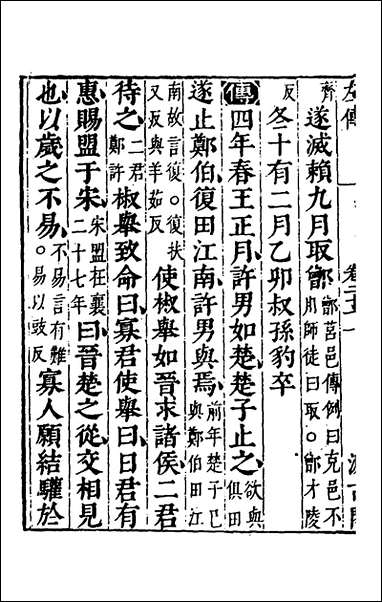 左傳
齊遂滅賴九月取鄫鄫莒邑傳例曰克邑不用師徒曰取。鄫才陵
反冬十有二月乙卯叔孫豹卒
傳四年春王正月許男如楚楚子止之欲與俱田
遂止鄭伯復田江南許男與焉前年楚子已與鄭伯田江
南故言復。復扶又反與羊茹反使椒舉如晉求諸侯二君
待之二君鄭許椒舉致命曰寡君使舉曰日君有
惠賜盟于宋宋盟在襄二十七年曰晉楚之從交相見
也以歲之不易不易言有難。易以豉反寡人願結驩於